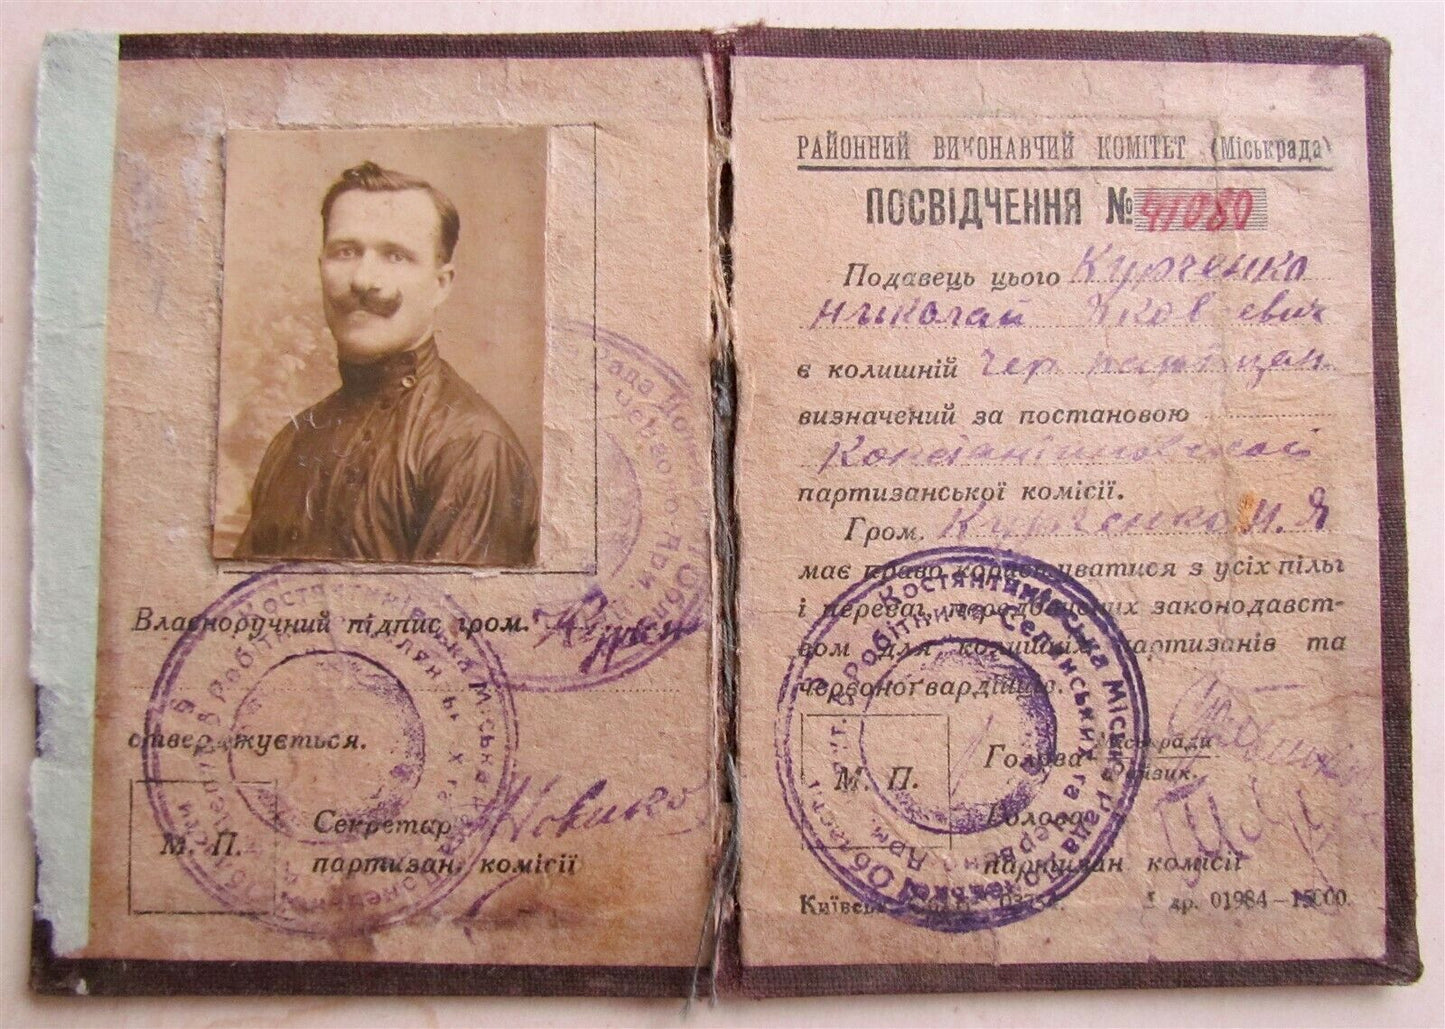 Власноручний підпис гром.
стверджується.
М. П.
Секретар
партизан. комісії
РАЙОННИЙ ВИКОНАВЧИЙ КОМІТЕТ (Міськрада)
ПОСВІДЧЕННЯ № 41080
Подавець цього Курченко
Николай Яковлевич
є колишній чер партизан
визначений за постановою
Константиновской
партизанської комісії.
Гром. Курченко Н. Я
має право користуватися з усіх пільг
і переваг, передбачених законодавст-
вом для колишніх партизанів та
червоногвардійців.
М. П.
Голова Міськради
Райвик.
Голова
партизан комісії
др. 01984—15000.